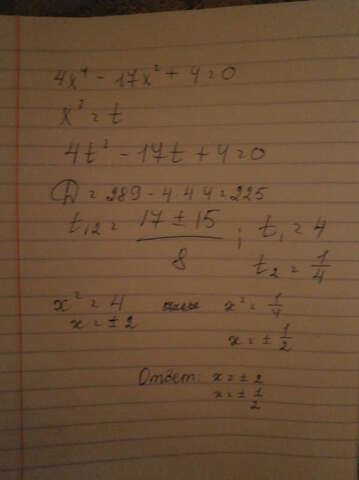 4x⁴ - 17x² + 4 = 0
x² = t
4t² - 17t + 4 = 0
D = 289 - 4·4·4 = 225
t₁,₂ = (17 ± 15)/8 ; t₁ = 4
t₂ = 1/4
x² = 4 или x² = 1/4
x = ± 2 x = ± 1/2
Ответ: x = ± 2
x = ± 1/2